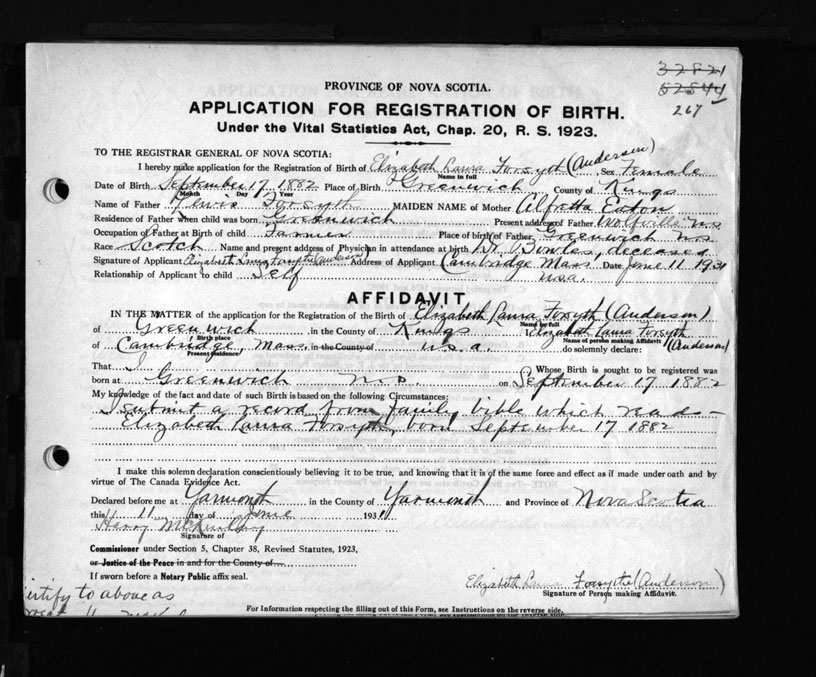 32821
52844
267
PROVINCE OF NOVA SCOTIA.
APPLICATION FOR REGISTRATION OF BIRTH.
Under the Vital Statistics Act, Chap. 20, R. S. 1923.
TO THE REGISTRAR GENERAL OF NOVA SCOTIA:
I hereby make application for the Registration of Birth of Elizabeth Laura Forsyth (Anderson) Sex Female
Name in full
Date of Birth September 17 1882 Place of Birth Greenwich County of Kings
Month Day Year
Name of Father Forsyth MAIDEN NAME of Mother Alfretta Eaton
Residence of Father when child was born Greenwich Present address of Father Wolfville N.S.
Occupation of Father at Birth of child Farmer Place of birth of Father Greenwich N.S.
Race Scotch Name and present address of Physician in attendance at birth Dr. Bowles, deceased
Signature of Applicant Elizabeth Laura Forsythe (Anderson) Address of Applicant Cambridge Mass Date June 11 1931
Relationship of Applicant to child Self U.S.A.
AFFIDAVIT
IN THE MATTER of the application for the Registration of the Birth of Elizabeth Laura Forsyth (Anderson)
Name in full
of Greenwich in the County of Kings I Elizabeth Laura Forsyth
Birth place Name of person making Affidavit
of Cambridge Mass. in the County of U.S.A. do solemnly declare: (Anderson)
Present residence
That I Whose Birth is sought to be registered was
born at Greenwich N.S. on September 17 1882
My knowledge of the fact and date of such Birth is based on the following Circumstances:
I submit a record from family bible which reads -
Elizabeth Laura Forsyth, born September 17 1882
I make this solemn declaration conscientiously believing it to be true, and knowing that it is of the same force and effect as if made under oath and by
virtue of The Canada Evidence Act.
Declared before me at Yarmouth in the County of Yarmouth and Province of Nova Scotia
this 11 day of June 1931
Harry McKinley
Signature of
Commissioner under Section 5, Chapter 38, Revised Statutes, 1923,
or Justice of the Peace in and for the County of
If sworn before a Notary Public affix seal.
Elizabeth Laura Forsythe (Anderson)
Signature of Person making Affidavit.
certify to above as
For Information respecting the filling out of this Form, see Instructions on the reverse side.